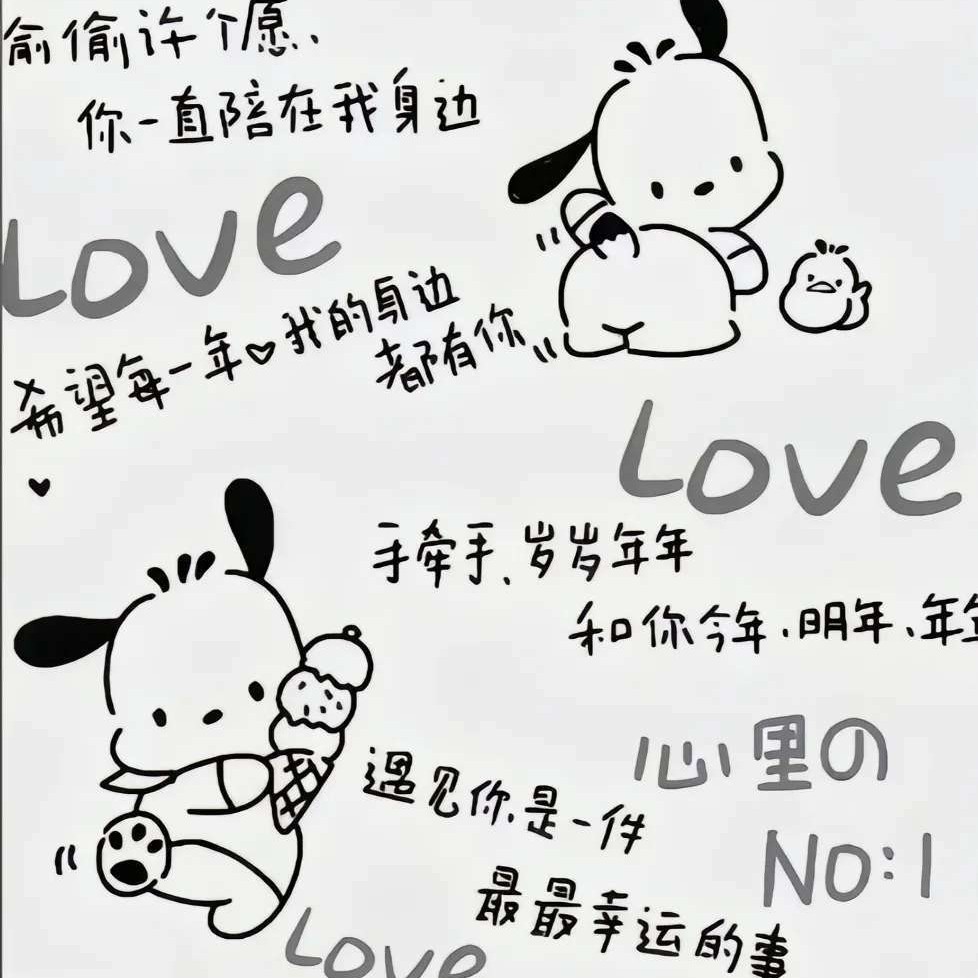 偷偷许个愿、
你一直陪在我身边
Love
希望每一年♡我的身边
都有你
Love
手牵手、岁岁年年
和你今年、明年、年年
遇见你是一件
最最幸运的事
心里の
NO:1
Love